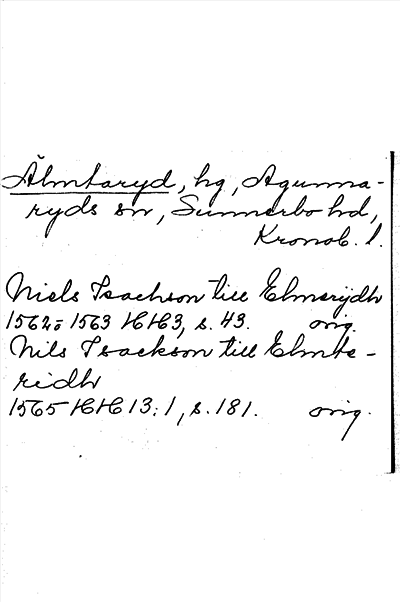 Älmtaryd, hg, Agunna-
ryds sn, Sunnerbo hd,
Kronob. l.
Niels Isachson till Elmerydh
1562-1563 HH3, s. 43. orig.
Nils Isackson till Elmte-
ridh
1565 HH 13:1, s. 181. orig.